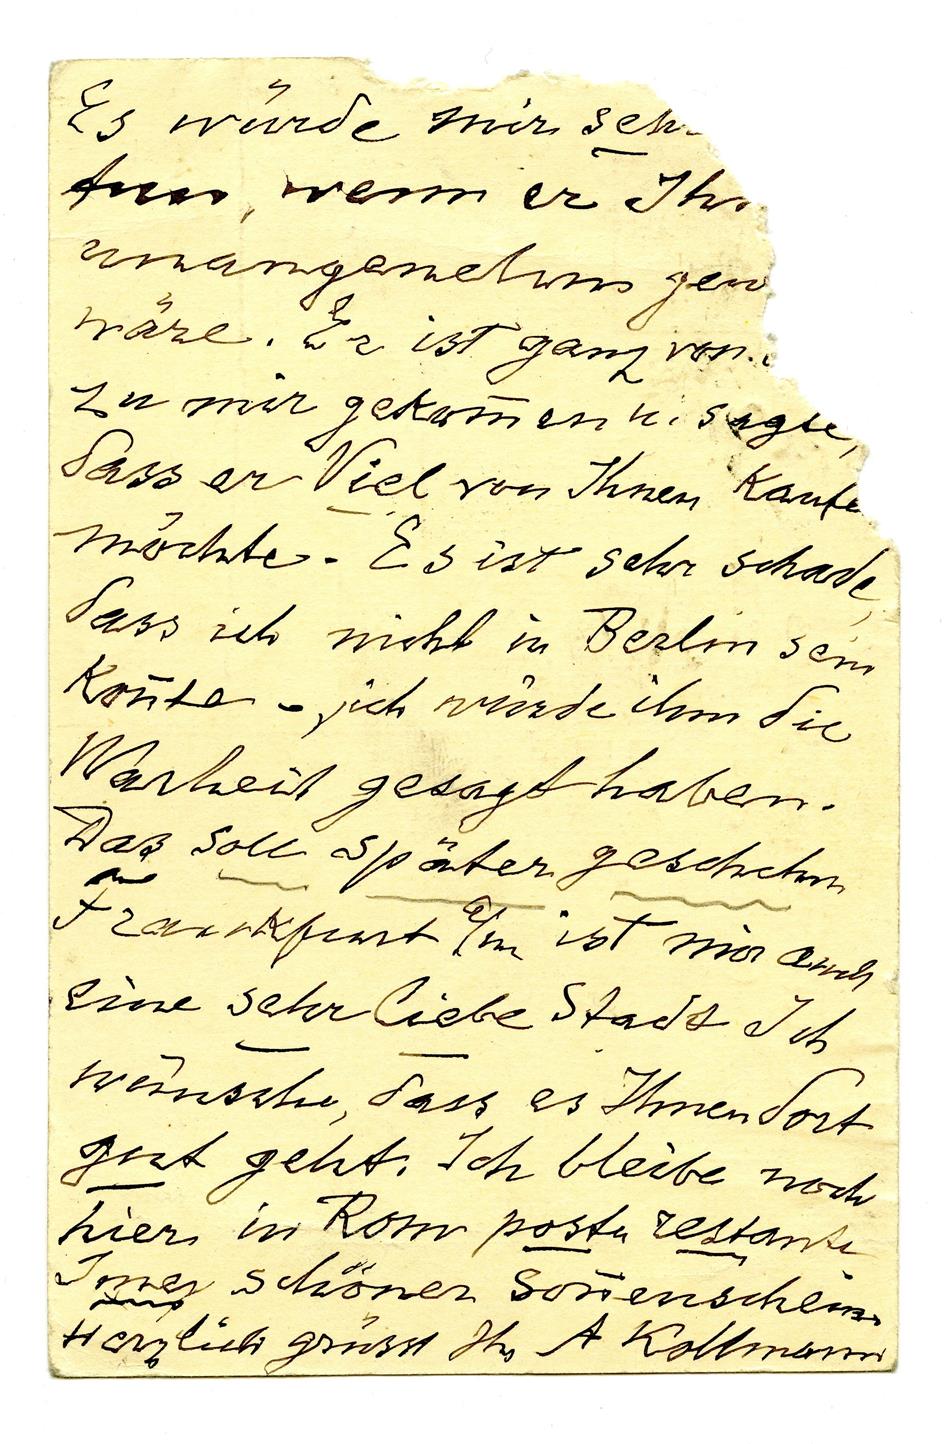 Es würde mir sehr
tun, wenn er Ihn
unangenehm gew
wäre. Er ist ganz von
zu mir gekom̄en u. sagte,
dass er Viel von Ihnen Kaufe
möchte - Es ist sehr schade,
dass ich nicht in Berlin sein
Kon̄te -, ich würde ihm die
Warheit gesagt haben.
Das soll später geschehn
Frankfurt a/m ist mir auch
eine sehr liebe Stadt Ich
wünsche, dass es Ihnen dort
gut geht. Ich bleibe noch
hier in Rom poste restante
Imer schöner Son̄enschein
Herzlich grüsst Ihr A Kollmann